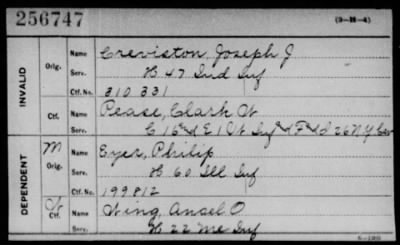 256747 (3-H-4)
INVALID
Orig. Name Creviston, Joseph J
Serv. H 47 Ind Inf
Ctf. No. 310 331
Ctf. Name Pease, Clark W
Serv. C 16 & E 1 Vt Inf & F & D 26 N.Y. Cav
DEPENDENT
M Orig. Name Eyer, Philip
Serv. H 60 Ill Inf
Ctf. No. 199812
W Ctf. Name Wing, Ansel O
Serv. H 22 Me Inf